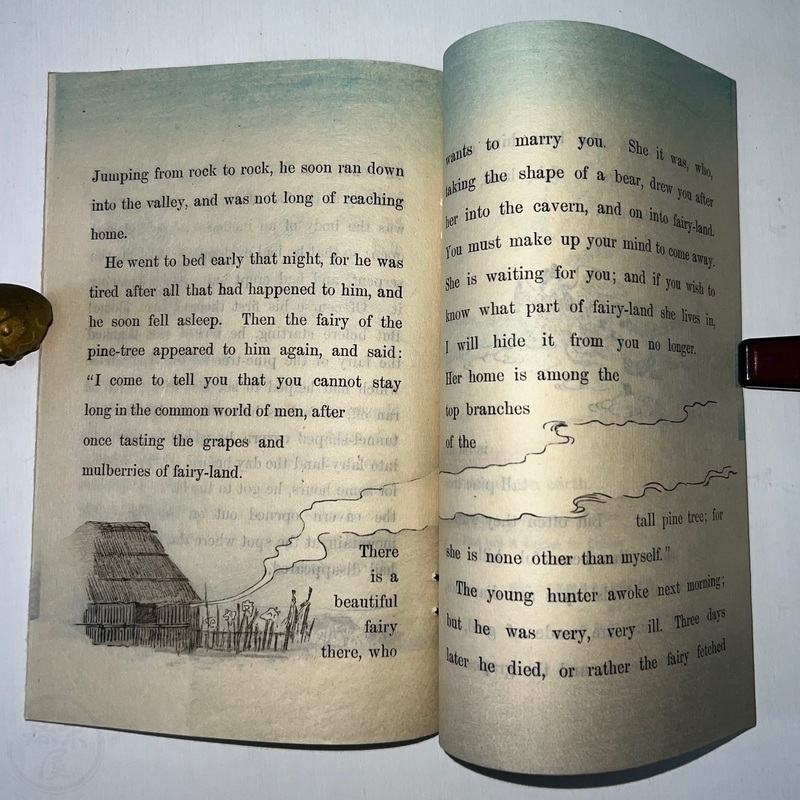 Jumping from rock to rock, he soon ran down
into the valley, and was not long of reaching
home.
He went to bed early that night, for he was
tired after all that had happened to him, and
he soon fell asleep. Then the fairy of the
pine-tree appeared to him again, and said:
“I come to tell you that you cannot stay
long in the common world of men, after
once tasting the grapes and
mulberries of fairy-land.
There
is a
beautiful
fairy
there, who
wants to marry you. She it was, who,
taking the shape of a bear, drew you after
her into the cavern, and on into fairy-land.
You must make up your mind to come away.
She is waiting for you; and if you wish to
know what part of fairy-land she lives in,
I will hide it from you no longer.
Her home is among the
top branches
of the
tall pine tree; for
she is none other than myself.”
The young hunter awoke next morning;
but he was very, very ill. Three days
later he died, or rather the fairy fetched